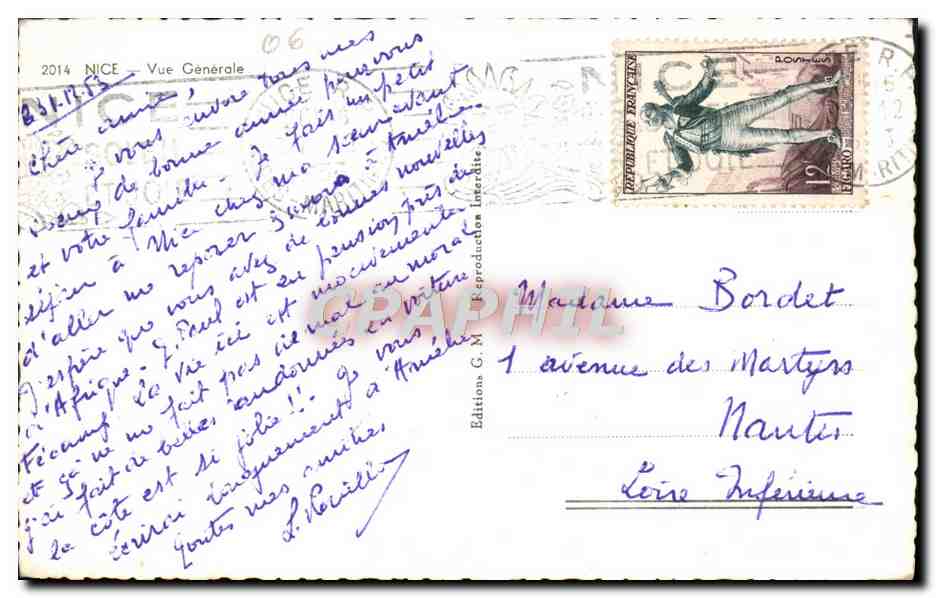 06
2014 NICE — Vue Générale
231.12.53
Chère amie,
Je vous envoie tous mes
voeux de bonne année pour vous
et votre famille. Je fais un petit
séjour à Nice chez ma soeur avant
d'aller me reposer 3 mois à Amélie
J'espère que vous avez de bonnes nouvelles
d'Afrique. J. Paul est en pension près de
Fécamp. La vie ici est mouvementée
et ça ne me fait pas de mal au moral
j'ai fait de belles randonnées en voiture
la côte est si jolie!! Je vous
écrirai longuement d'Amélie
Toutes mes amitiés
Editions G. M. Reproduction Interdite
NICE
REPUBLIQUE FRANÇAISE
POSTES
12F
FIGARO
Madame Bordet
1 avenue des Martyrs
Nantes
Loire Inférieure
CPAPHIL